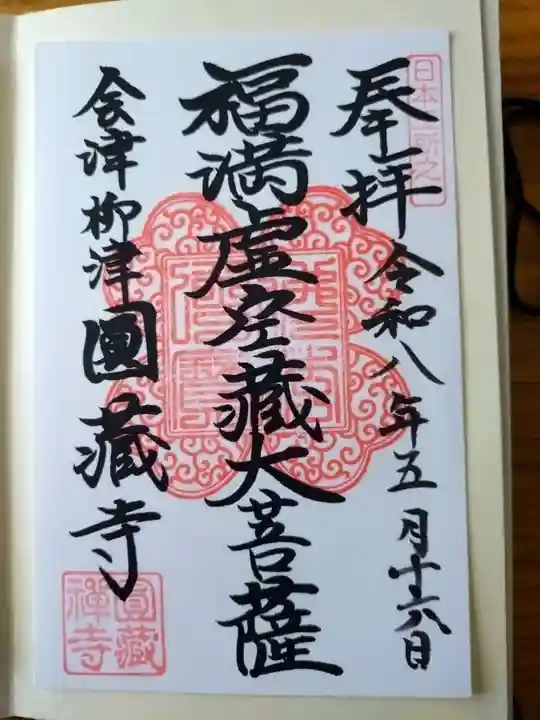 奉拝 令和八年五月十六日
福満虚空藏大菩薩
会津柳津 圓藏寺
圓藏
禅寺